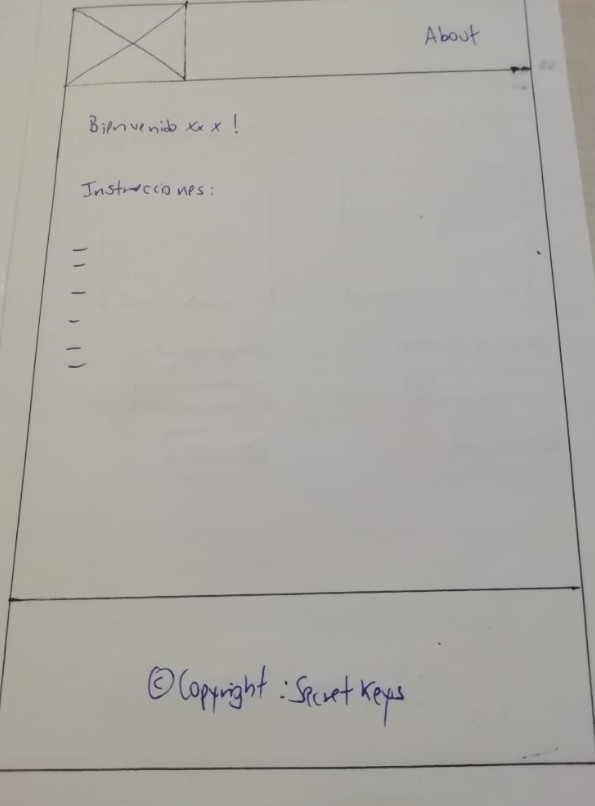 About
Bienvenido xxx!
Instrucciones:
© Copyright : Secret Keys